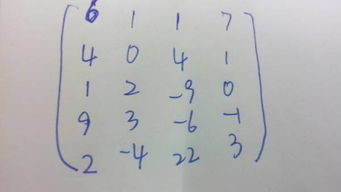 6 1 1 7
4 0 4 1
1 2 -9 0
9 3 -6 -1
2 -4 22 3